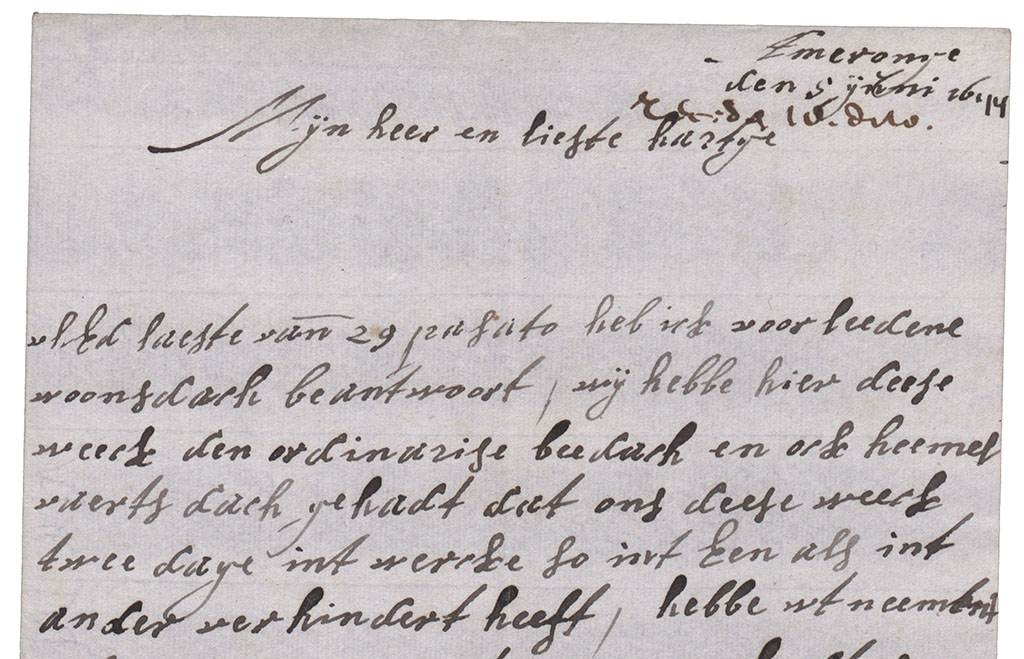 Ameronge
den 5 ijuni 1677
Mijn heer en liefste hartge
uhEd laeste van 29 pasato heb ick voorleedene
woonsdach beantwoort, wij hebbe hier deese
weeck den ordinarise beedach en ock heemel
vaerts dach gehadt dat ons deese weeck
twee dage int wercke so int Een als int
ander verhindert heeft, hebbe wt neement